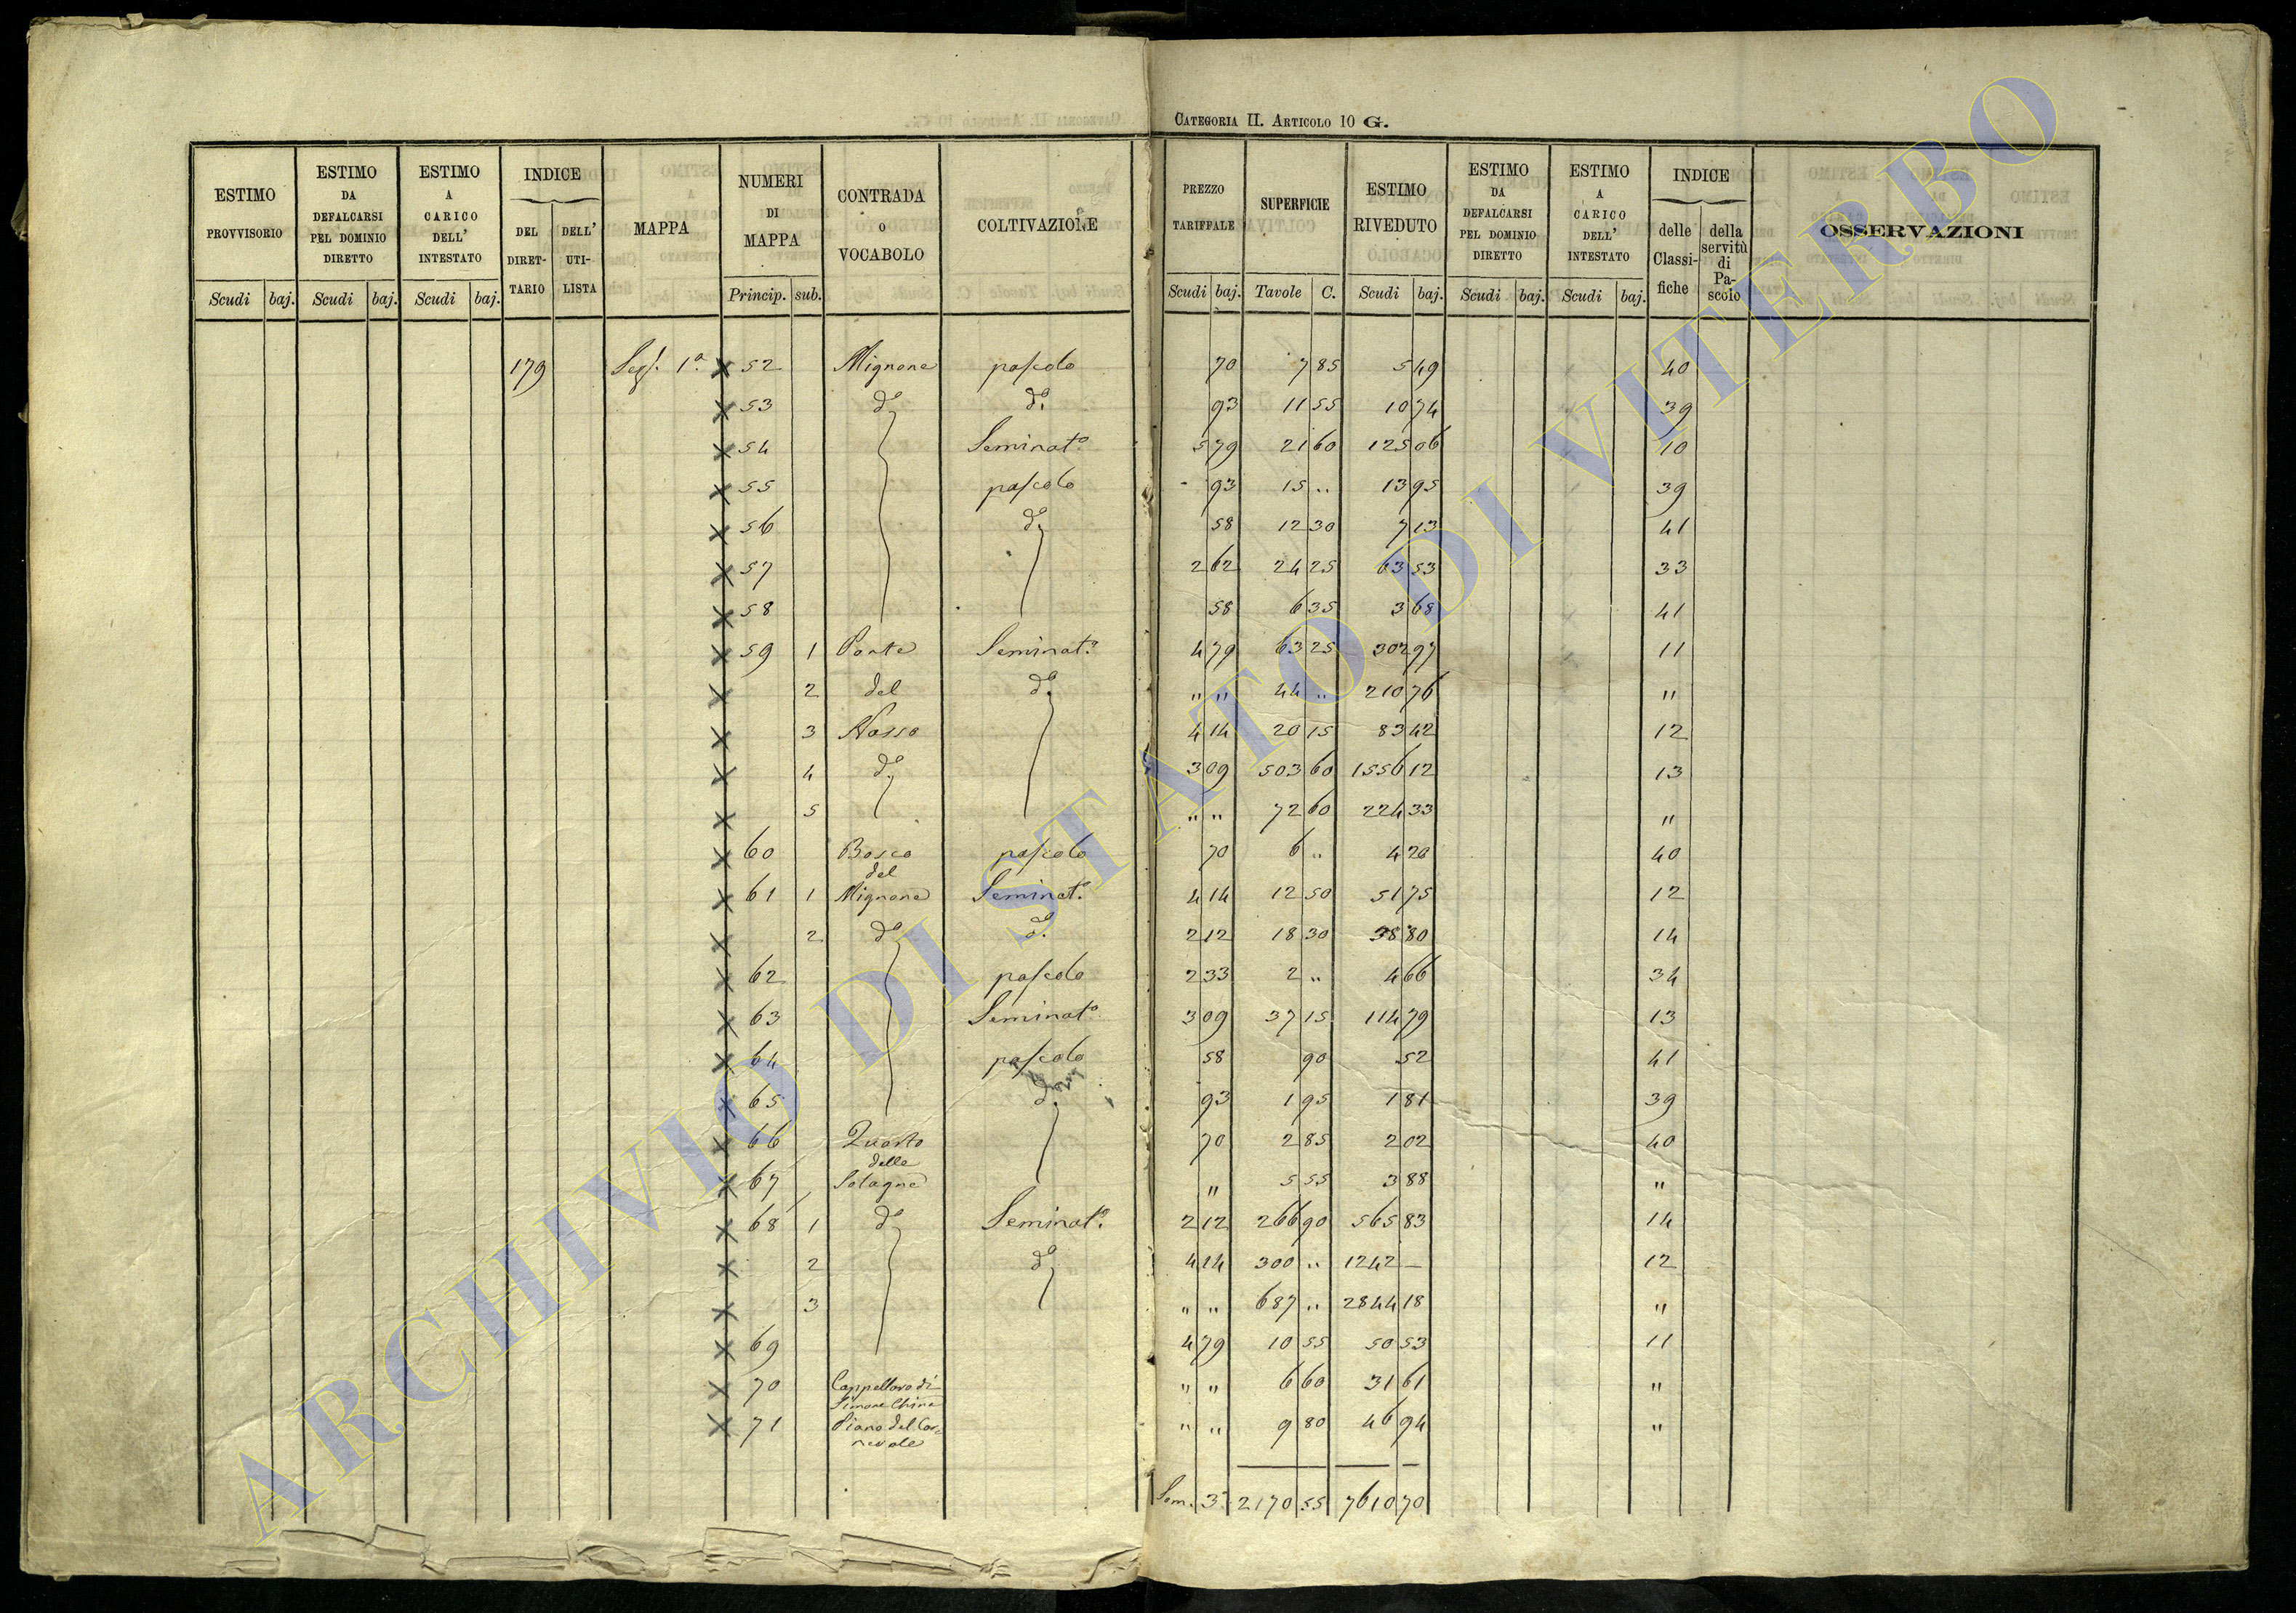 CATEGORIA II. ARTICOLO 10 G.
ESTIMO PROVVISORIO Scudi baj.
ESTIMO DA DEFALCARSI PEL DOMINIO DIRETTO Scudi baj.
ESTIMO A CARICO DELL' INTESTATO Scudi baj.
INDICE DEL DIRET-TARIO DELL' UTI-LISTA
MAPPA
NUMERI DI MAPPA Princip. sub.
CONTRADA o VOCABOLO
COLTIVAZIONE
PREZZO TARIFFALE Scudi baj.
SUPERFICIE Tavole C.
ESTIMO RIVEDUTO Scudi baj.
ESTIMO DA DEFALCARSI PEL DOMINIO DIRETTO Scudi baj.
ESTIMO A CARICO DELL' INTESTATO Scudi baj.
INDICE delle Classi-fiche della servitù di Pa-scolo
OSSERVAZIONI
179 1ª x 52 Mignone pascolo 70 7 85 5 49 40
x 53 d° d° 93 11 55 10 74 39
x 54 Seminat° 5 79 21 60 125 06 10
x 55 pascolo 93 15 " 13 95 39
x 56 d° 58 12 30 7 13 41
x 57 2 62 24 25 63 53 33
x 58 58 6 35 3 68 41
x 59 1 Ponte Seminat° 4 79 63 25 302 97 11
x 2 del d° " " 44 " 210 76 "
x 3 Nasso 4 14 20 15 83 42 12
x 4 d° 3 09 503 60 1556 12 13
x 5 " " 72 60 224 33 "
x 60 Bosco pascolo 70 6 " 4 20 40
del
x 61 1 Mignone Seminat° 4 14 12 50 51 75 12
x 2 d° d° 2 12 18 30 38 80 14
x 62 pascolo 2 33 2 " 4 66 34
x 63 Seminat° 3 09 37 15 114 79 13
x 64 pascolo 58 90 52 41
x 65 d° 93 1 95 1 81 39
x 66 Quarto 70 2 85 2 02 40
delle
x 67 Solagne " 5 55 3 88 "
x 68 1 d° Seminat° 2 12 266 90 565 83 14
x 2 d° 4 14 300 " 1242 — 12
x 3 " " 687 " 2844 18 "
x 69 4 79 10 55 50 53 11
x 70 Cappellara di " " 6 60 31 61 "
Simone China
x 71 Piano del Car= " " 9 80 46 94 "
nevale
Som. 3ª 2170 55 7610 70
ARCHIVIO DI STATO DI VITERBO